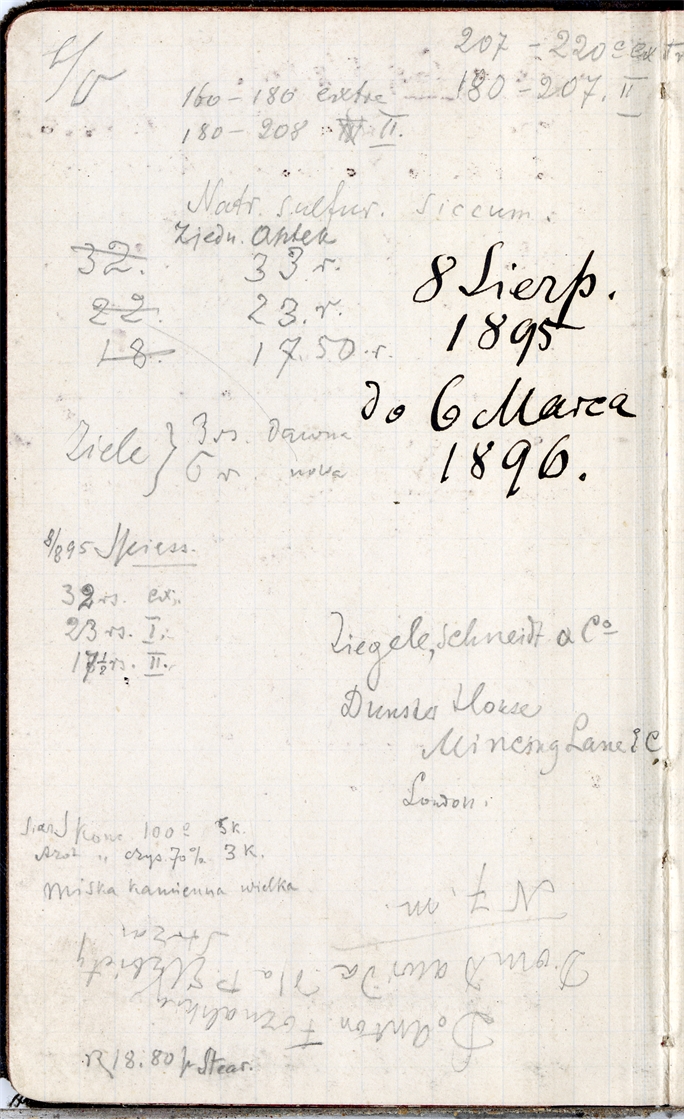 207 - 220° extr
160 - 180 extra — 180 - 207. II
180 - 208 II.
Natr. sulfur. siccum.
Zjedn. Aptek
32. 33 r.
22. 23. r.
18. 17.50. r.
8 Sierp.
1895
do 6 Marca
1896.
Ziele } 3 rs. dawna
6 r. nowa
8/895 Spiess.
32 rs. ex.
23 rs. I.
17½ rs. II.
Ziegele, Schneidt & Co
Dunster House
Mincing Lane E C
London.
Siar konc. 100° 5 k.
Azot " czys. 70% 3 K.
Miska kamienna wielka
N 7. m.
Dom Dawida dla P. Elżbiety
Doktor Poznański
18. 80 p Stear.